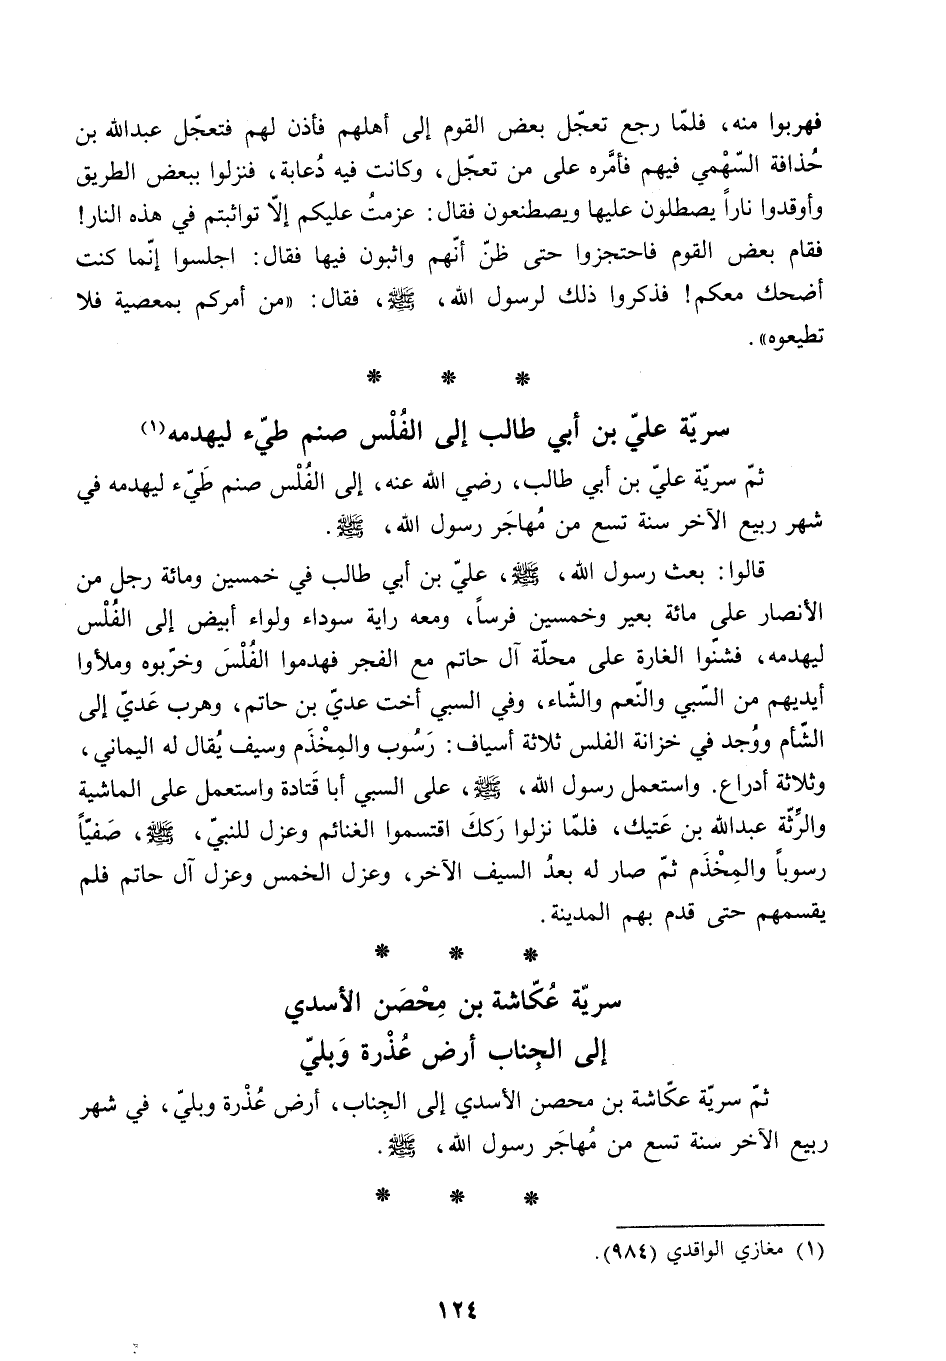 فهربوا منه، فلمّا رجع تعجّل بعض القوم إلى أهلهم فأذن لهم فتعجّل عبدالله بن
حُذافة السّهْمي فيهم فأمَّره على من تعجّل، وكانت فيه دُعابة، فنزلوا ببعض الطريق
وأوقدوا ناراً يصطلون عليها ويصطنعون فقال: عزمتُ عليكم إلاّ تواثبتم في هذه النار!
فقام بعض القوم فاحتجزوا حتى ظنّ أنّهم واثبون فيها فقال: اجلسوا إنّما كنت
أضحك معكم! فذكروا ذلك لرسول الله، ﷺ، فقال: «من أمركم بمعصية فلا
تطيعوه».
* * *
سريّة عليّ بن أبي طالب إلى الفُلْس صنم طيّء ليهدمه(١)
ثمّ سريّة عليّ بن أبي طالب، رضي الله عنه، إلى الفُلْس صنم طَيّء ليهدمه في
شهر ربيع الآخر سنة تسع من مُهاجَر رسول الله، ﷺ.
قالوا: بعث رسول الله، ﷺ، عليّ بن أبي طالب في خمسين ومائة رجل من
الأنصار على مائة بعير وخمسين فرساً، ومعه راية سوداء ولواء أبيض إلى الفُلْس
ليهدمه، فشنّوا الغارة على محلّة آل حاتم مع الفجر فهدموا الفُلْسَ وخرّبوه وملأوا
أيديهم من السّبي والنّعم والشّاء، وفي السبي أخت عديّ بن حاتم، وهرب عَديّ إلى
الشّأم ووُجد في خزانة الفلس ثلاثة أسياف: رَسُوب والمِخْذَم وسيف يُقال له اليماني،
وثلاثة أدراع. واستعمل رسول الله، ﷺ، على السبي أبا قَتادة واستعمل على الماشية
والرِّثّة عبدالله بن عَتيك، فلمّا نزلوا رَكَكَ اقتسموا الغنائم وعزل للنبيّ، ﷺ، صَفيّاً
رسوباً والمِخْذَم ثمّ صار له بعدُ السيف الآخر، وعزل الخمس وعزل آل حاتم فلم
يقسمهم حتى قدم بهم المدينة.
* * *
سريّة عُكّاشة بن مِحْصَن الأسدي
إلى الجِناب أرض عُذْرة وَبليّ
ثمّ سريّة عكّاشة بن محصن الأسدي إلى الجِناب، أرض عُذْرة وبليّ، في شهر
ربيع الآخر سنة تسع من مُهاجَر رسول الله، ﷺ.
* * *
(١) مغازي الواقدي (٩٨٤).
١٢٤